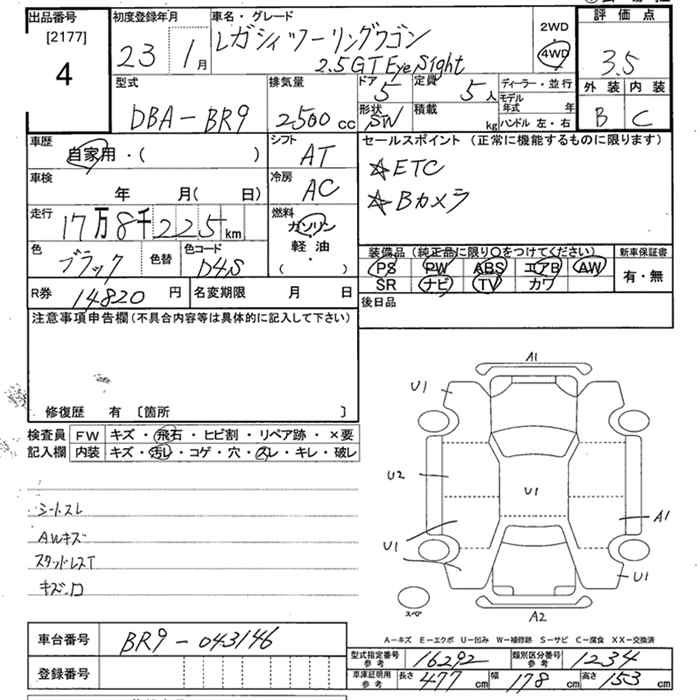 出品番号 [2177] 4
初度登録年月 23 1月
車名・グレード レガシィツーリングワゴン 2.5GT EyeSight
2WD 4WD
評価点 3.5
外装 内装
B C
型式 DBA-BR9
排気量 2500 cc
ドア 5 定員 5人
形状 SW 積載 kg
ディーラー・並行
モデル年式 年
ハンドル 左・右
車歴 自家用・( )
シフト AT
セールスポイント (正常に機能するものに限ります)
☆ETC
☆Bカメラ
車検 年 月(日)
冷房 AC
走行 17万8千225km
燃料 ガソリン 軽油・( )
色 ブラック 色替 色コード D4S
装備品(純正品に限り〇をつけてください)
PS PW ABS エアB AW
SR ナビ TV カワ
新車保証書 有・無
R券 14820円 名変期限 月 日
後日品
注意事項申告欄(不具合内容等は具体的に記入して下さい)
修復歴 有 [箇所 ]
検査員記入欄
FW キズ・飛石・ヒビ割・リペア跡・×要
内装 キズ・汚レ・コゲ・穴・スレ・キレ・破レ
シートスレ
AWキズ
スタッドレスT
A1
U1
U2
U1
A1
U1
U1
スペア
A2
A-キズ E-エクボ U-凹み W-補修跡 S-サビ C-腐食 XX-交換済
車台番号 BR9-043146
登録番号
型式指定番号 参考 16292 類別区分番号 参考 1234
車庫証明用 参考 長さ 477cm 幅 178cm 高さ 153cm